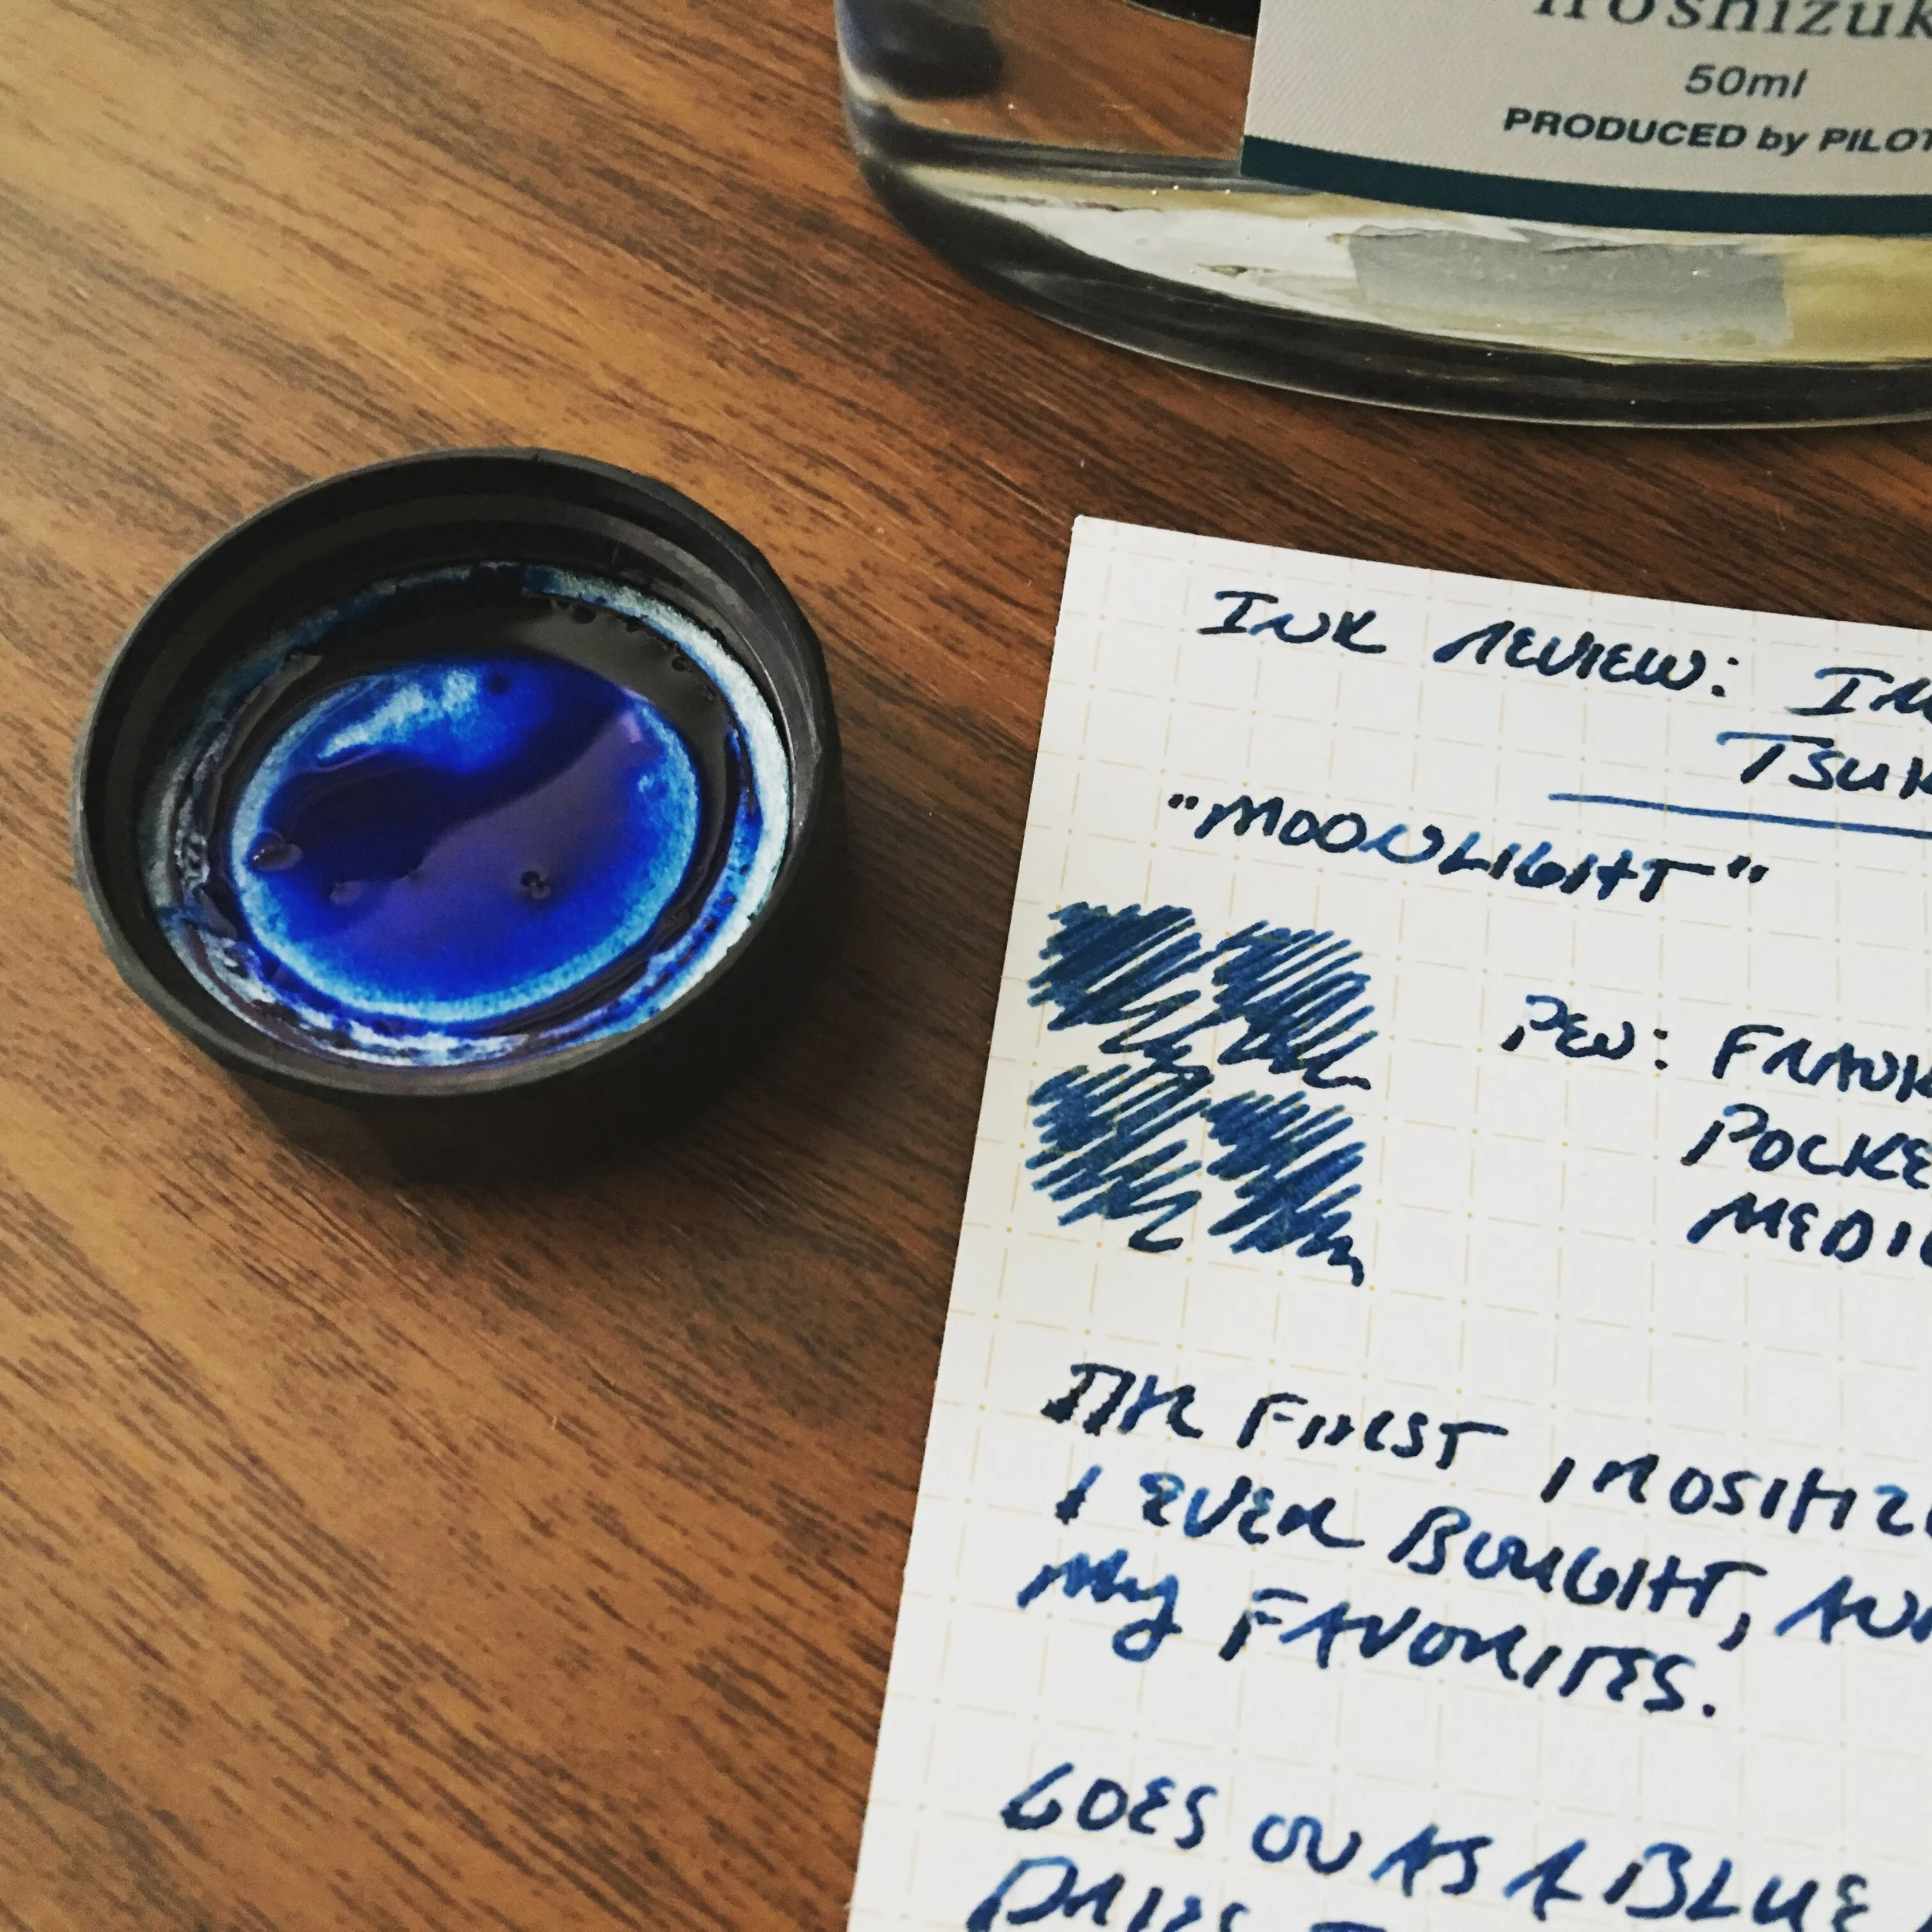 iroshizuk
50ml
PRODUCED by PILOT
INK REVIEW: IR
TSUK
"MOONLIGHT"
PEN: FRANK
POCKE
MEDIU
THE FIRST IROSHIZU
I EVER BOUGHT, AN
MY FAVORITES.
GOES ON AS A BLUE
DRIES T